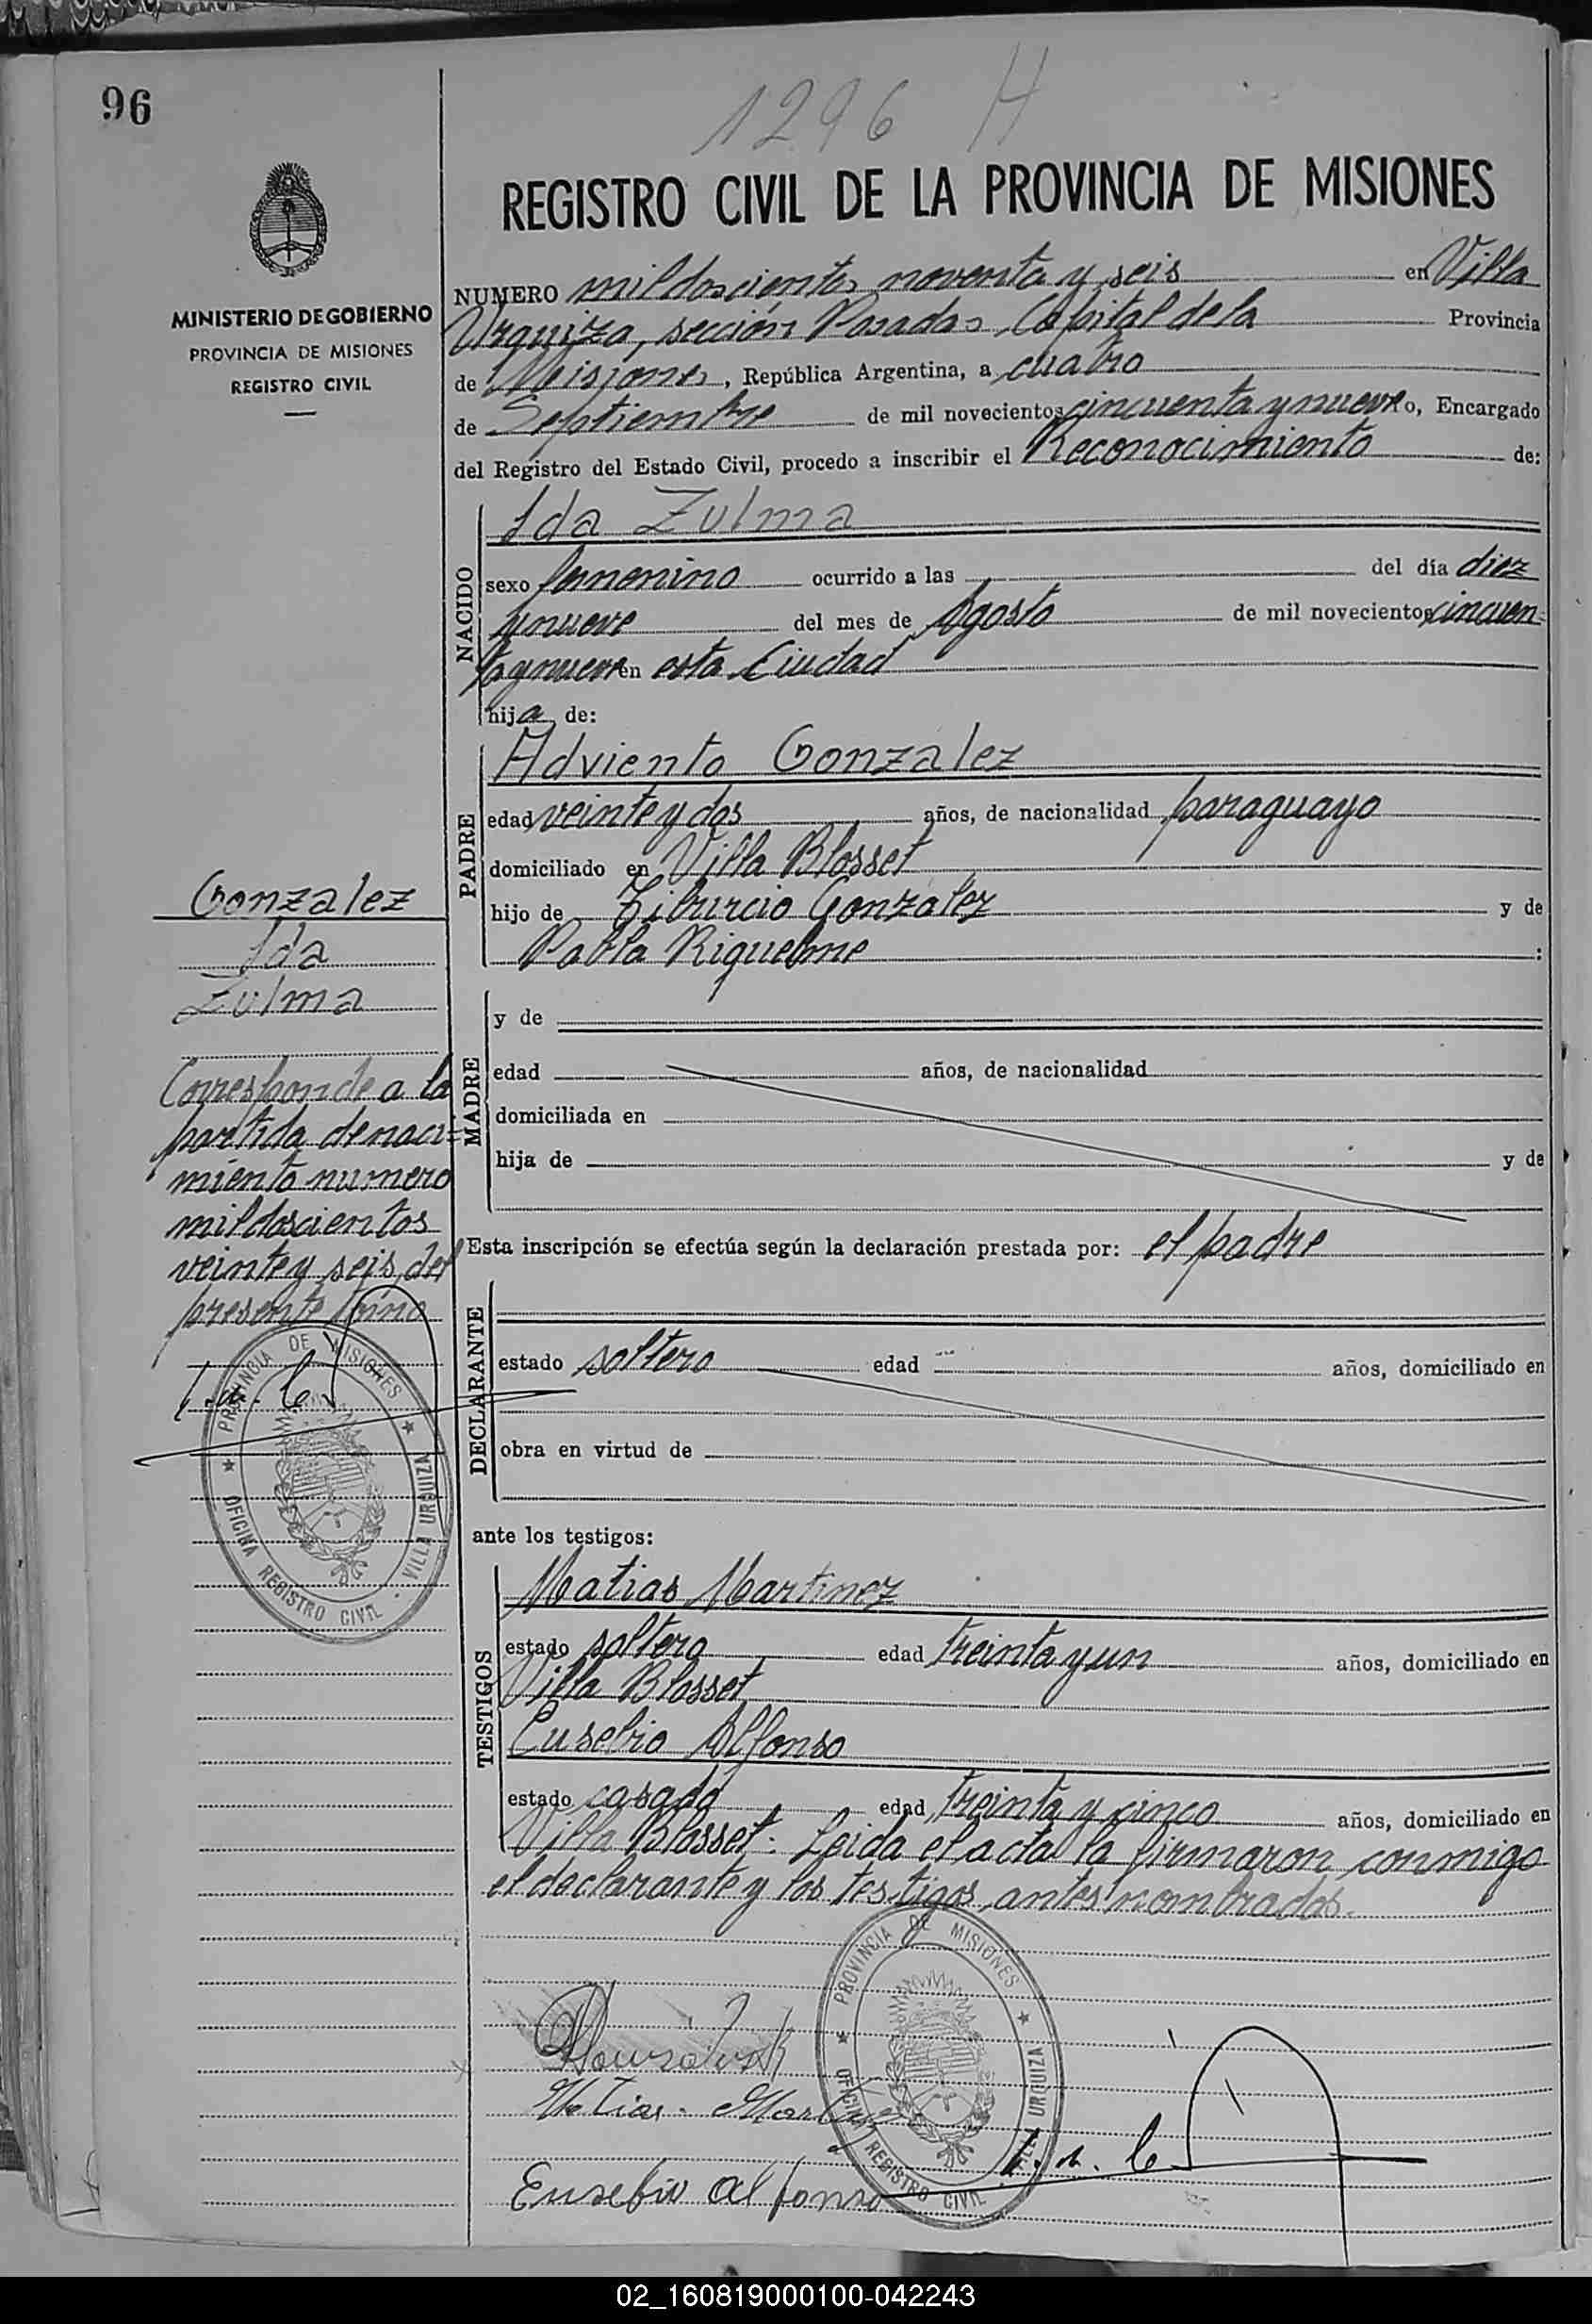 96
1296 H
MINISTERIO DE GOBIERNO
PROVINCIA DE MISIONES
REGISTRO CIVIL
REGISTRO CIVIL DE LA PROVINCIA DE MISIONES
NUMERO mil doscientos noventa y seis en Villa
Urquiza, sección Posadas Capital de la Provincia
de Misiones, República Argentina, a cuatro
de Septiembre de mil novecientos cincuenta y nueve o, Encargado
del Registro del Estado Civil, procedo a inscribir el Reconocimiento de:
NACIDO
Ida Zulma
sexo femenino ocurrido a las del día diez
y nueve del mes de Agosto de mil novecientos cincuen=
ta y nueve en esta Ciudad
hija de:
PADRE
Adviento Gonzalez
edad veinte y dos años, de nacionalidad paraguayo
domiciliado en Villa Blosset
hijo de Tiburcio Gonzalez y de
Pabla Riquelme :
MADRE
y de
edad años, de nacionalidad
domiciliada en
hija de y de
Esta inscripción se efectúa según la declaración prestada por: el padre
DECLARANTE
estado soltero edad años, domiciliado en
obra en virtud de
ante los testigos:
TESTIGOS
Matias Martinez
estado soltero edad treinta y un años, domiciliado en
Villa Blosset
Eusebio Alfonso
estado casado edad treinta y cinco años, domiciliado en
Villa Blosset. Leida el acta la firmaron conmigo
el declarante y los testigos antes nombrados.
Gonzalez
Ida
Zulma
Corresponde a la
partida de naci=
miento numero
mil doscientos
veinte y seis del
presente tomo
PROVINCIA DE MISIONES
OFICINA REGISTRO CIVIL - VILLA URQUIZA
Matias Martinez
Eusebio Alfonso
PROVINCIA DE MISIONES
OFICINA REGISTRO CIVIL - VILLA URQUIZA
02_160819000100-042243